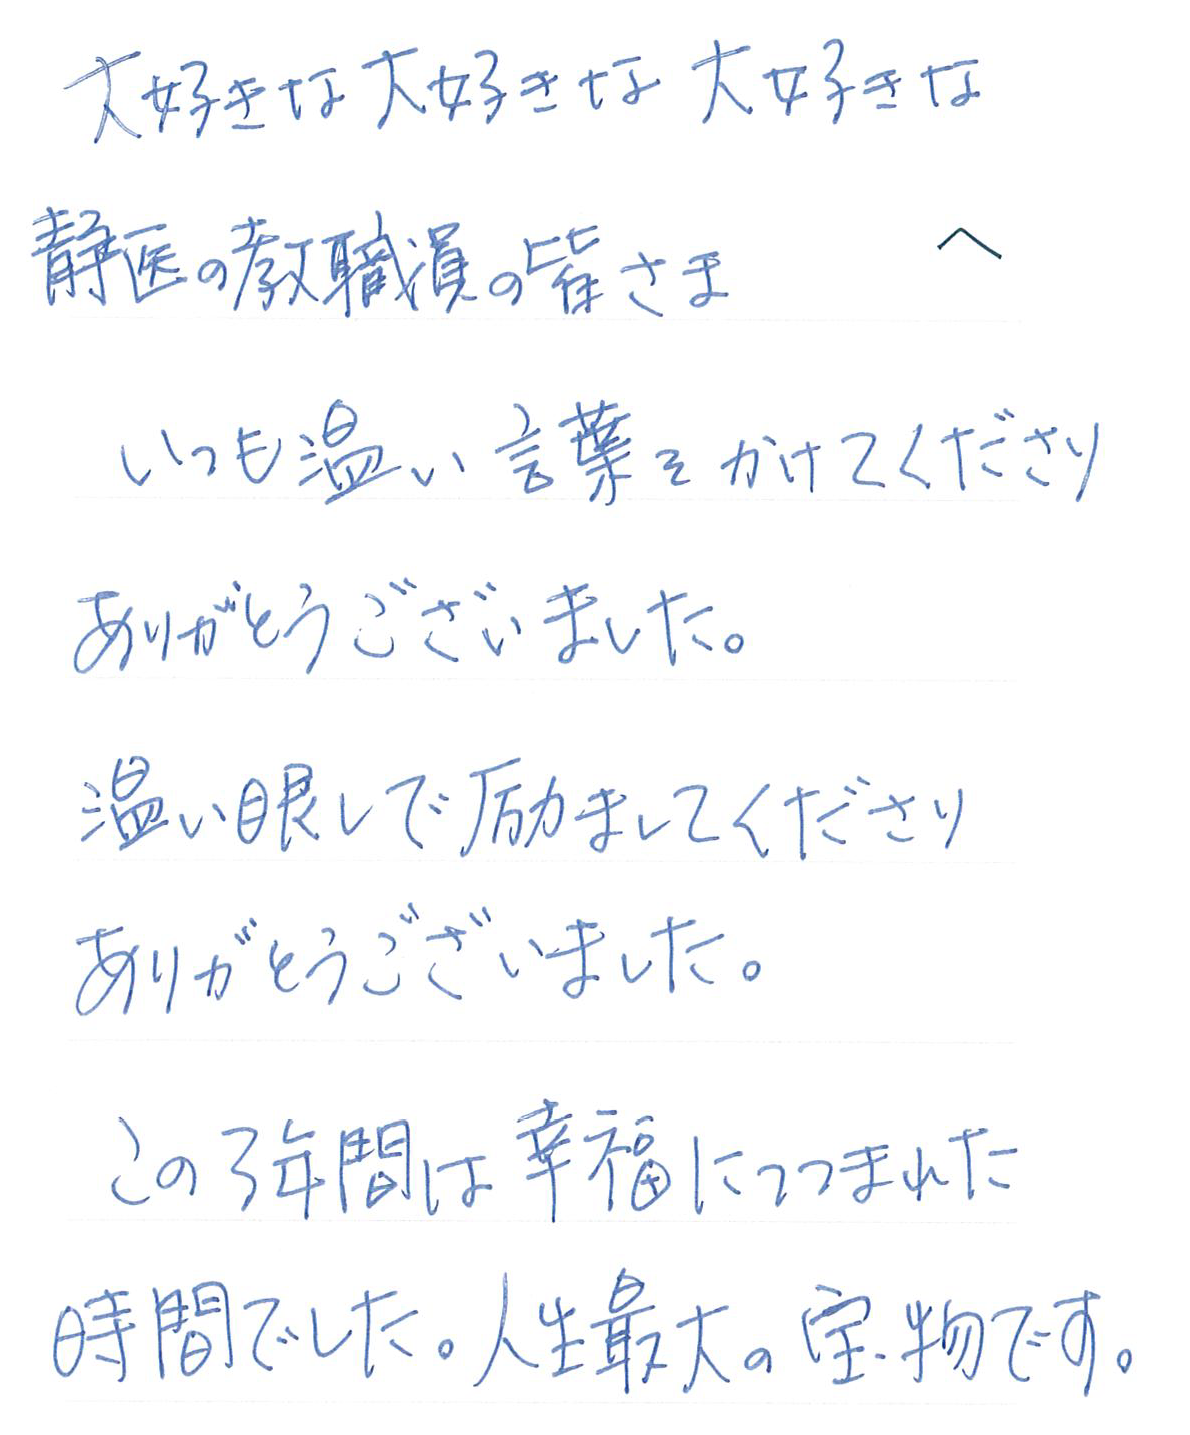 大好きな大好きな大好きな
静医の教職員の皆さま へ
いつも温い言葉をかけてくださり
ありがとうございました。
温い眼しで励ましてくださり
ありがとうございました。
この3年間は幸福につつまれた
時間でした。人生最大の宝物です。